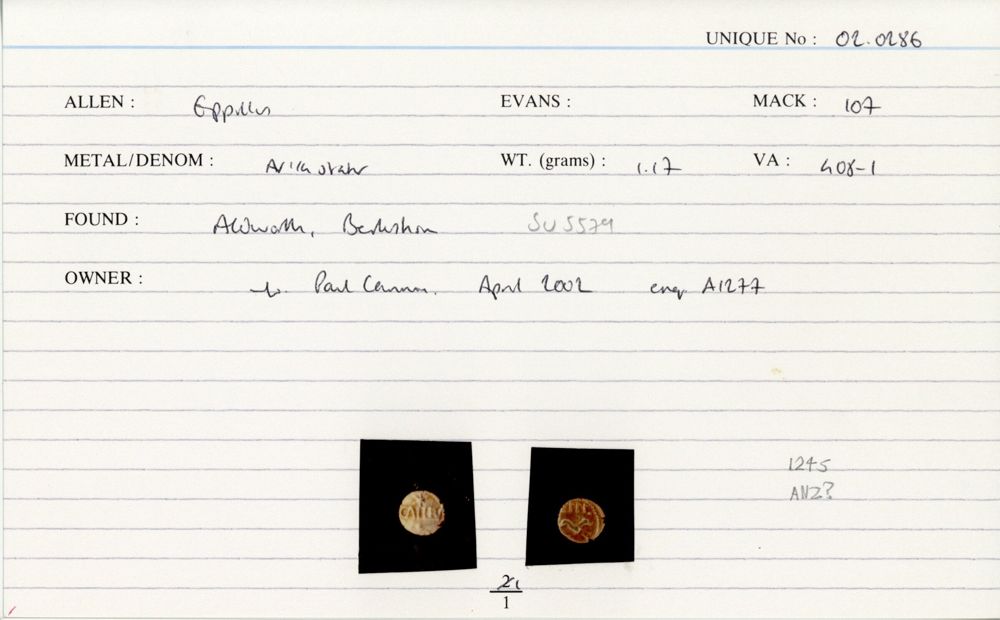 UNIQUE No : 02.0286
ALLEN : Eppillus EVANS : MACK : 107
METAL/DENOM : AV 1/4 stater WT. (grams) : 1.17 VA : 408-1
FOUND : Aldworth, Berkshire SU 5579
OWNER : Paul Cannon. April 2002 enq. A1277
1245
ANZ?
CALLEV
EPP
1